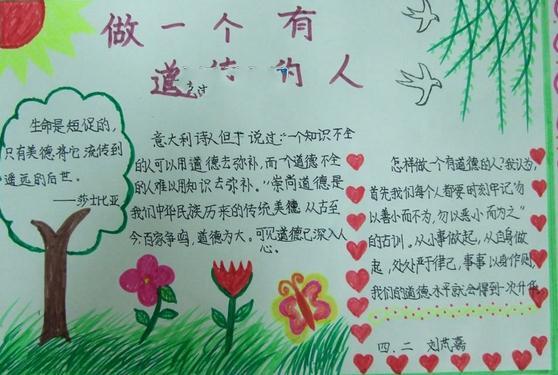 做一个有
道德的人
生命是短促的，
只有美德将它流传到
遥远的后世。
——莎士比亚
意大利诗人但丁说过："一个知识不全
的人可以用道德去弥补，而一个道德不全
的人难以用知识去弥补。"崇尚道德是
我们中华民族历来的传统美德，从古至
今百家争鸣，道德为大。可见道德已深入人
心。
怎样做一个有道德的人？我认为，
首先我们每个人都要时刻牢记"勿
以善小而不为，勿以恶小而为之"
的古训，从小事做起，从自身做
起，处处严于律己，事事以身作则，
我们的道德水平就会得到一次升华
四．二 刘芃嘉